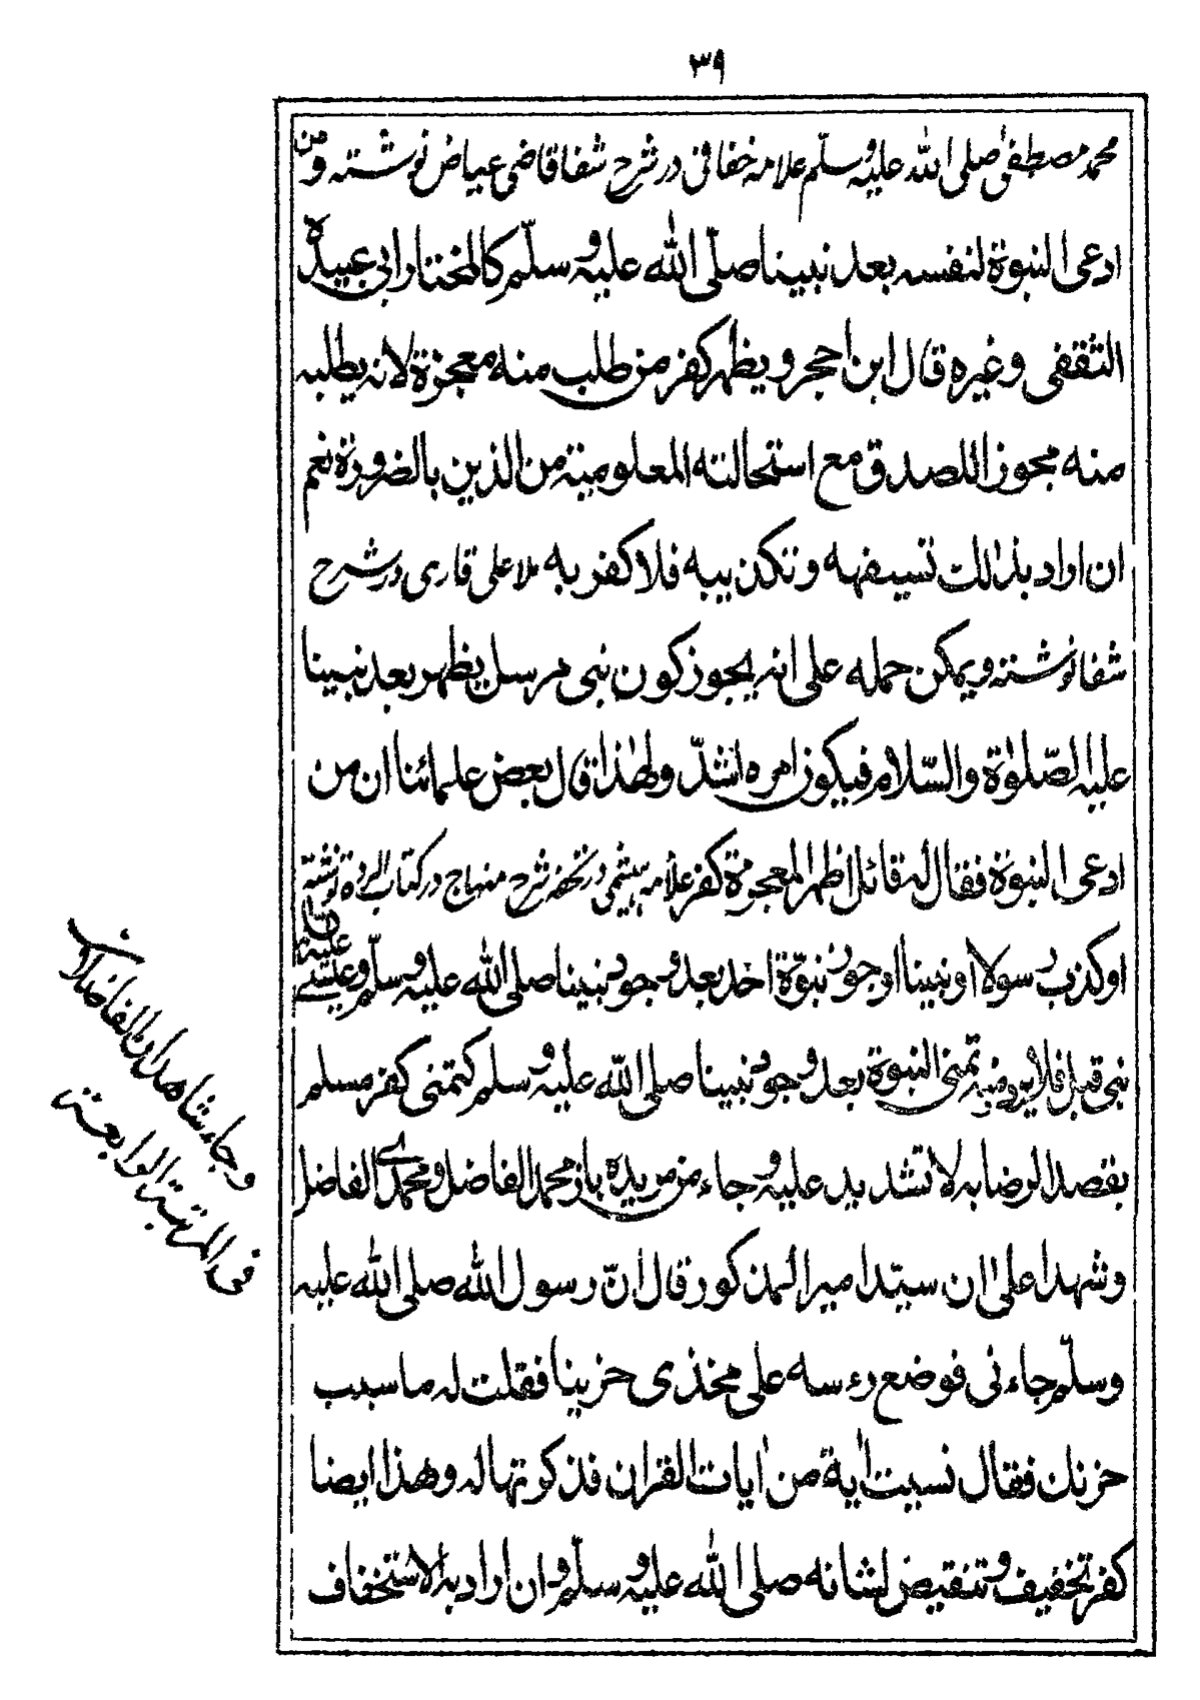 ٣٩
محمد مصطفیٰ صلی الله علیه وسلم علامه خفاقی در شرح شفا قاضی عیاض نوشته ومن
ادعی النبوة لنفسه بعد نبینا صلّی الله علیه وسلّم کالمختار ابی عبیدة
الثقفی وغیره قال ابن احجر ویظهر کفر من طلب منه معجزة لانه یطلبه
منه مجوز اللصدق مع استحالته المعلومیة من الذین بالضرورة نعم
ان اراد بذالك تسیفهه وتکذیبه فلا کفر به ملا علی قاری در شرح
شفا نوشته ویمکن حمله علی انه یجوز کون نبی مرسل یظهر بعد نبینا
علیه الصّلوٰة والسّلام فیکون امره اشدّ ولهٰذا قال بعض علمائنا ان من
ادعی النبوة فقال له قائل اظهر المعجزة کفر علامه هیثمی در تحفه شرح منهاج در کتاب الردة نوشته
او کذب رسولا او نبینا او جوز نبوّة احد بعد وجود نبینا صلی الله علیه وسلّم وعیسی علیه
نبی قبل فلا یرد ومنه تمنی النبوة بعد وجود نبینا صلی الله علیه وسلم کتمنی کفر مسلم
بقصد الرضا به لا تشدید علیه وجاء من مریده باز محمد الفاضل ومحمدی الفاضل
وشهدا علیٰ ان سیّد امیر المذکور قال انّ رسول الله صلی الله علیه
وسلّم جاءنی فوضع رءسه علی مخذی حزینا فقلت له ما سبب
حزنك فقال نسیت اٰیة من اٰیات القران فذکرتها له وهذا ایضا
کفر تخفیف وتنقیض لشانه صلی الله علیه وسلّم وان اراد به الاستخفاف
وجاء شاهدان الفاضلان
فی المرتبة الرابعة